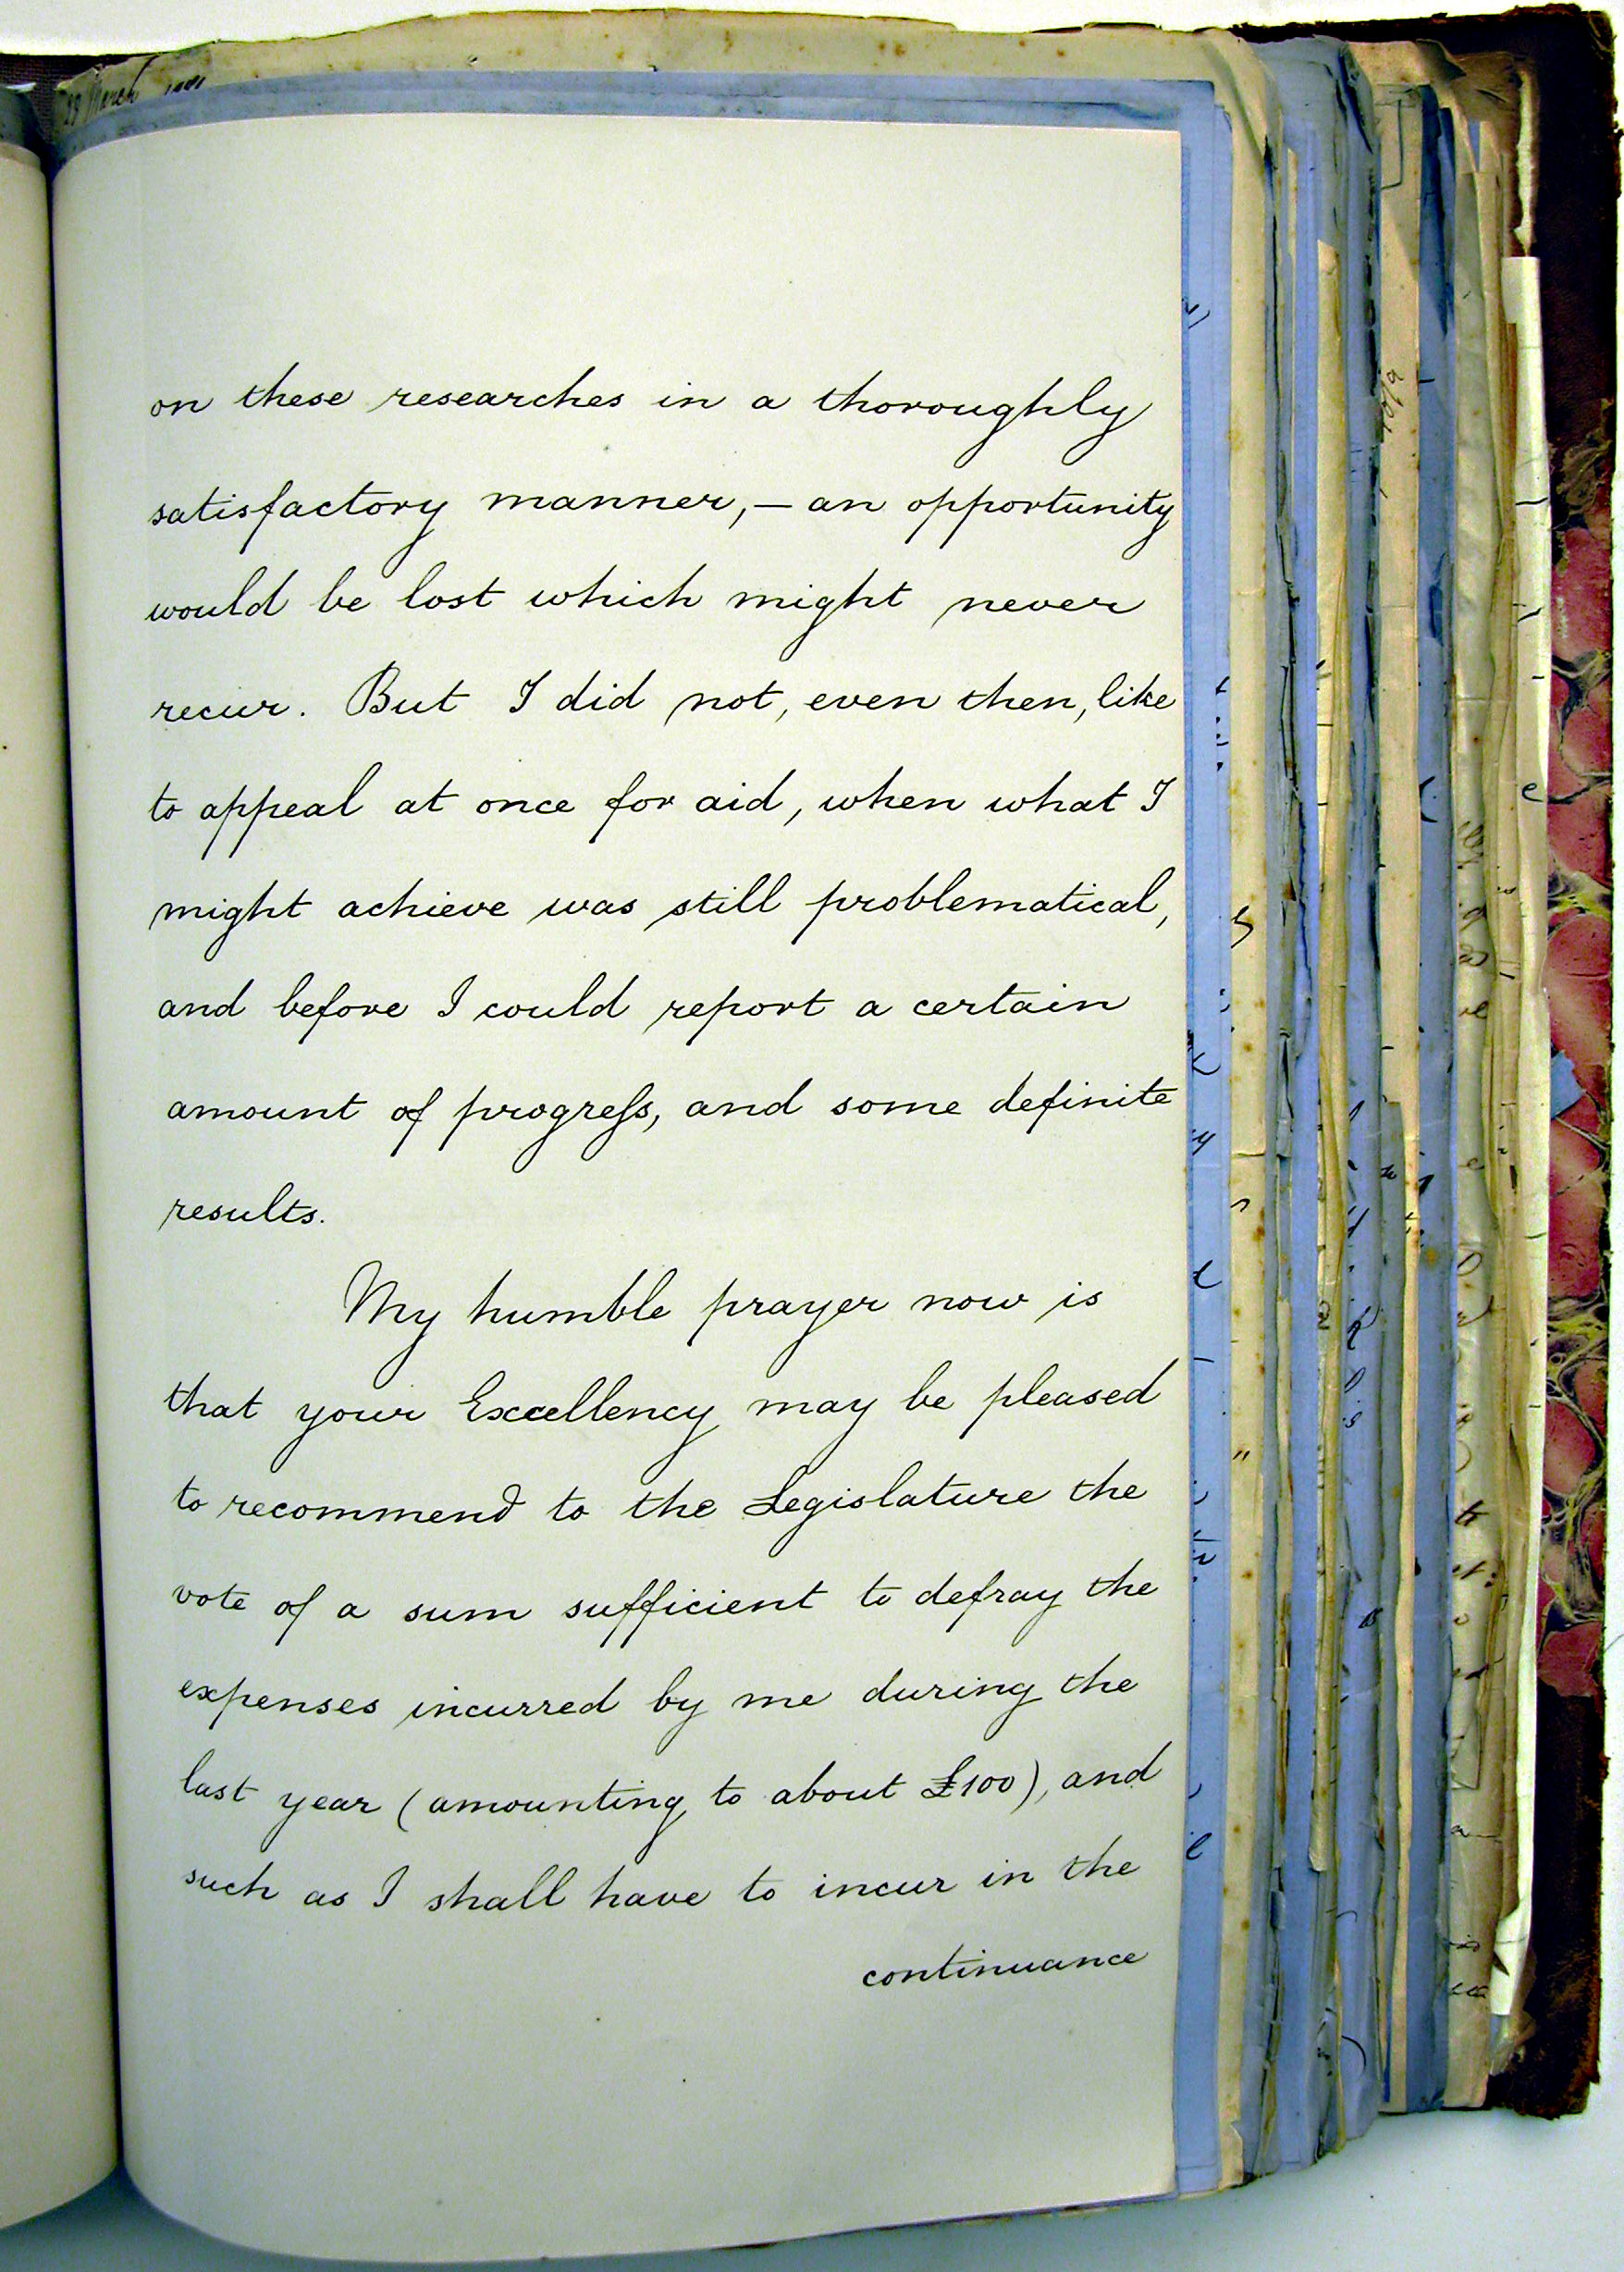 29 March
on these researches in a thoroughly
satisfactory manner, — an opportunity
would be lost which might never
recur. But I did not, even then, like
to appeal at once for aid, when what I
might achieve was still problematical,
and before I could report a certain
amount of progreſs, and some definite
results.
My humble prayer now is
that your Excellency may be pleased
to recommend to the Legislature the
vote of a sum sufficient to defray the
expenses incurred by me during the
last year (amounting to about £100), and
such as I shall have to incur in the
continuance